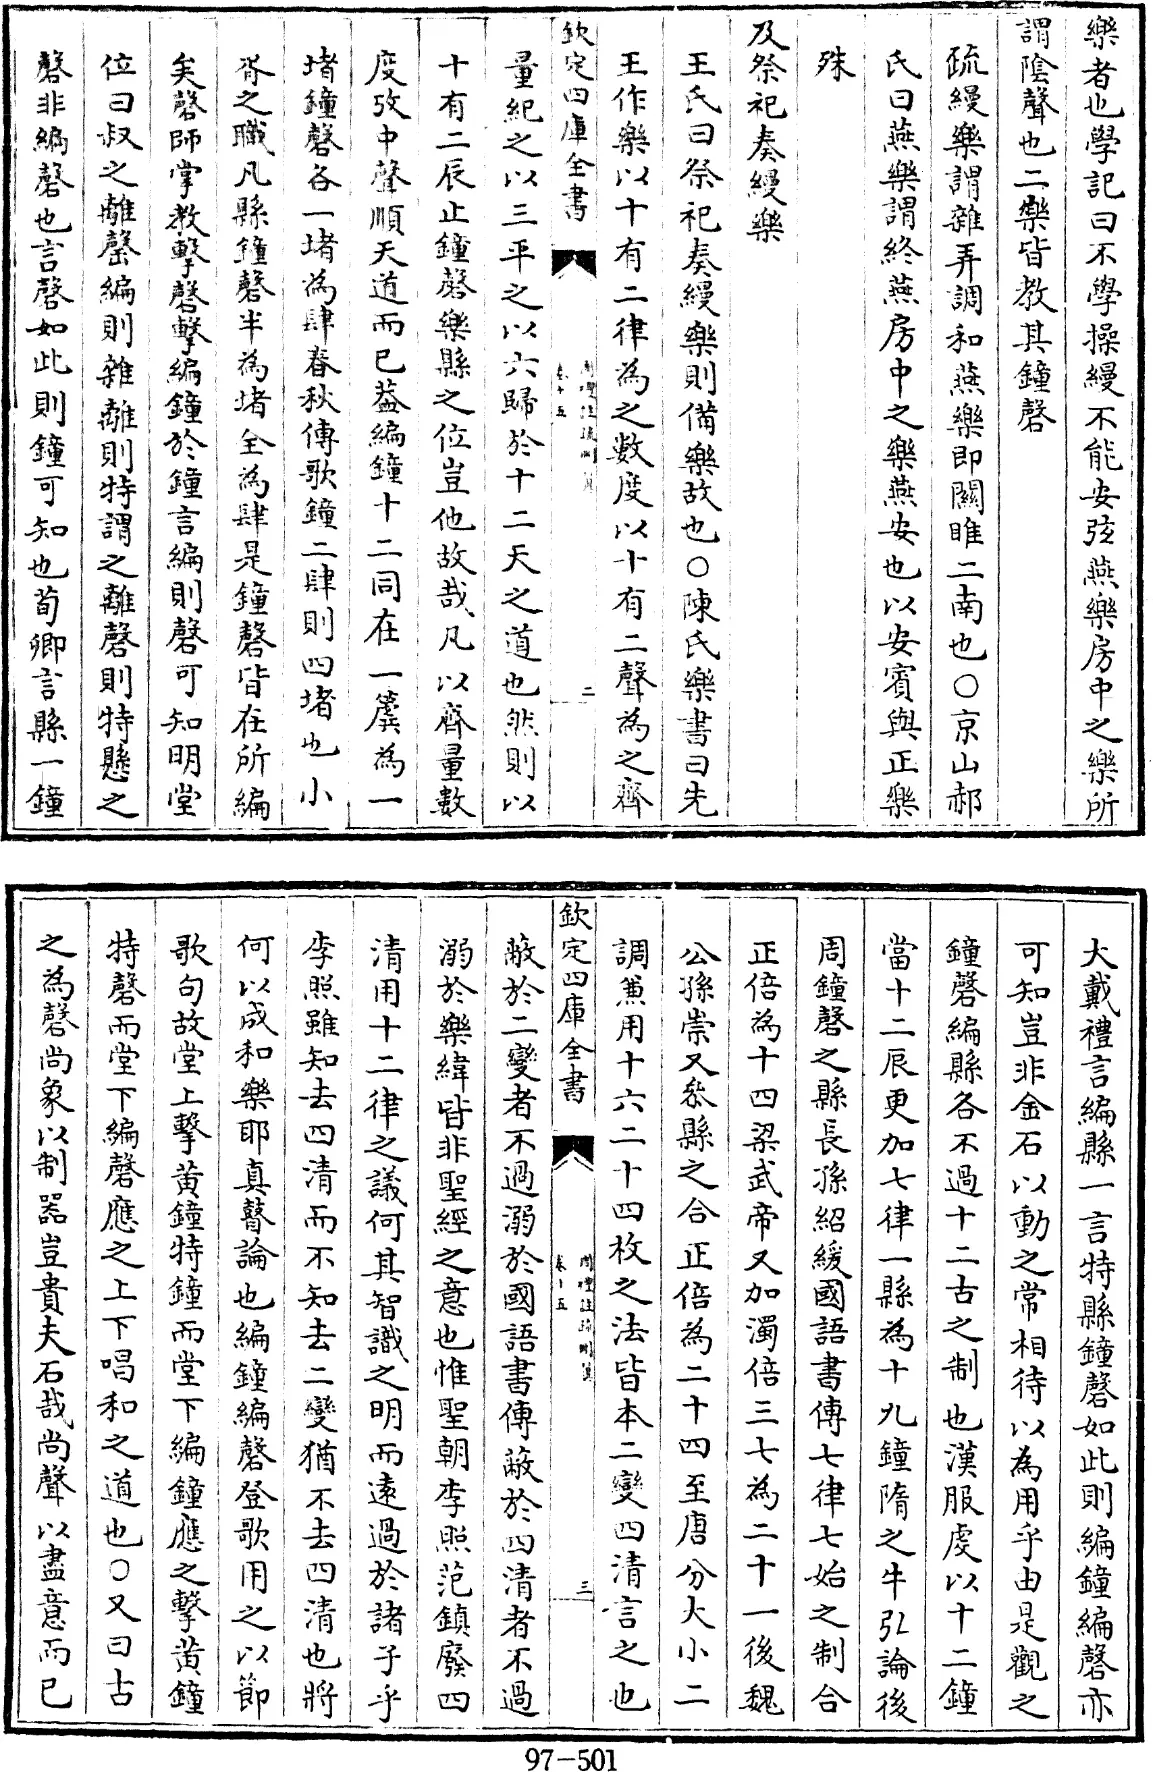 樂者也學記曰不學操縵不能安弦燕樂房中之樂所
謂陰聲也二樂皆教其鐘磬
疏縵樂謂雜弄調和燕樂即關雎二南也○京山郝
氏曰燕樂謂終燕房中之樂燕安也以安賓與正樂
殊
及祭祀奏縵樂
王氏曰祭祀奏縵樂則備樂故也○陳氏樂書曰先
王作樂以十有二律為之數度以十有二聲為之齊
欽定四庫全書
周禮註疏刪翼
卷十五
二
量紀之以三平之以六歸於十二天之道也然則以
十有二辰止鐘磬樂縣之位豈他故哉凡以齊量數
度攷中聲順天道而已葢編鐘十二同在一簴為一
堵鐘磬各一堵為肆春秋傳歌鐘二肆則四堵也小
胥之職凡縣鐘磬半為堵全為肆是鐘磬皆在所編
矣磬師掌教擊磬擊編鐘於鐘言編則磬可知明堂
位曰叔之離磬編則雜離則特謂之離磬則特懸之
磬非編磬也言磬如此則鐘可知也荀卿言縣一鐘
大戴禮言編縣一言特縣鐘磬如此則編鐘編磬亦
可知豈非金石以動之常相待以為用乎由是觀之
鐘磬編縣各不過十二古之制也漢服虔以十二鐘
當十二辰更加七律一縣為十九鐘隋之牛弘論後
周鐘磬之縣長孫紹緩國語書傳七律七始之制合
正倍為十四梁武帝又加濁倍三七為二十一後魏
公孫崇又叅縣之合正倍為二十四至唐分大小二
調兼用十六二十四枚之法皆本二變四清言之也
欽定四庫全書
周禮註疏刪翼
卷十五
三
蔽於二變者不過溺於國語書傳蔽於四清者不過
溺於樂緯皆非聖經之意也惟聖朝李照范鎮廢四
清用十二律之議何其智識之明而遠過於諸子乎
李照雖知去四清而不知去二變猶不去四清也將
何以成和樂耶真瞽論也編鐘編磬登歌用之以節
歌句故堂上擊黃鐘特鐘而堂下編鐘應之擊黃鐘
特磬而堂下編磬應之上下唱和之道也○又曰古
之為磬尚象以制器豈貴夫石哉尚聲以盡意而已
97-501